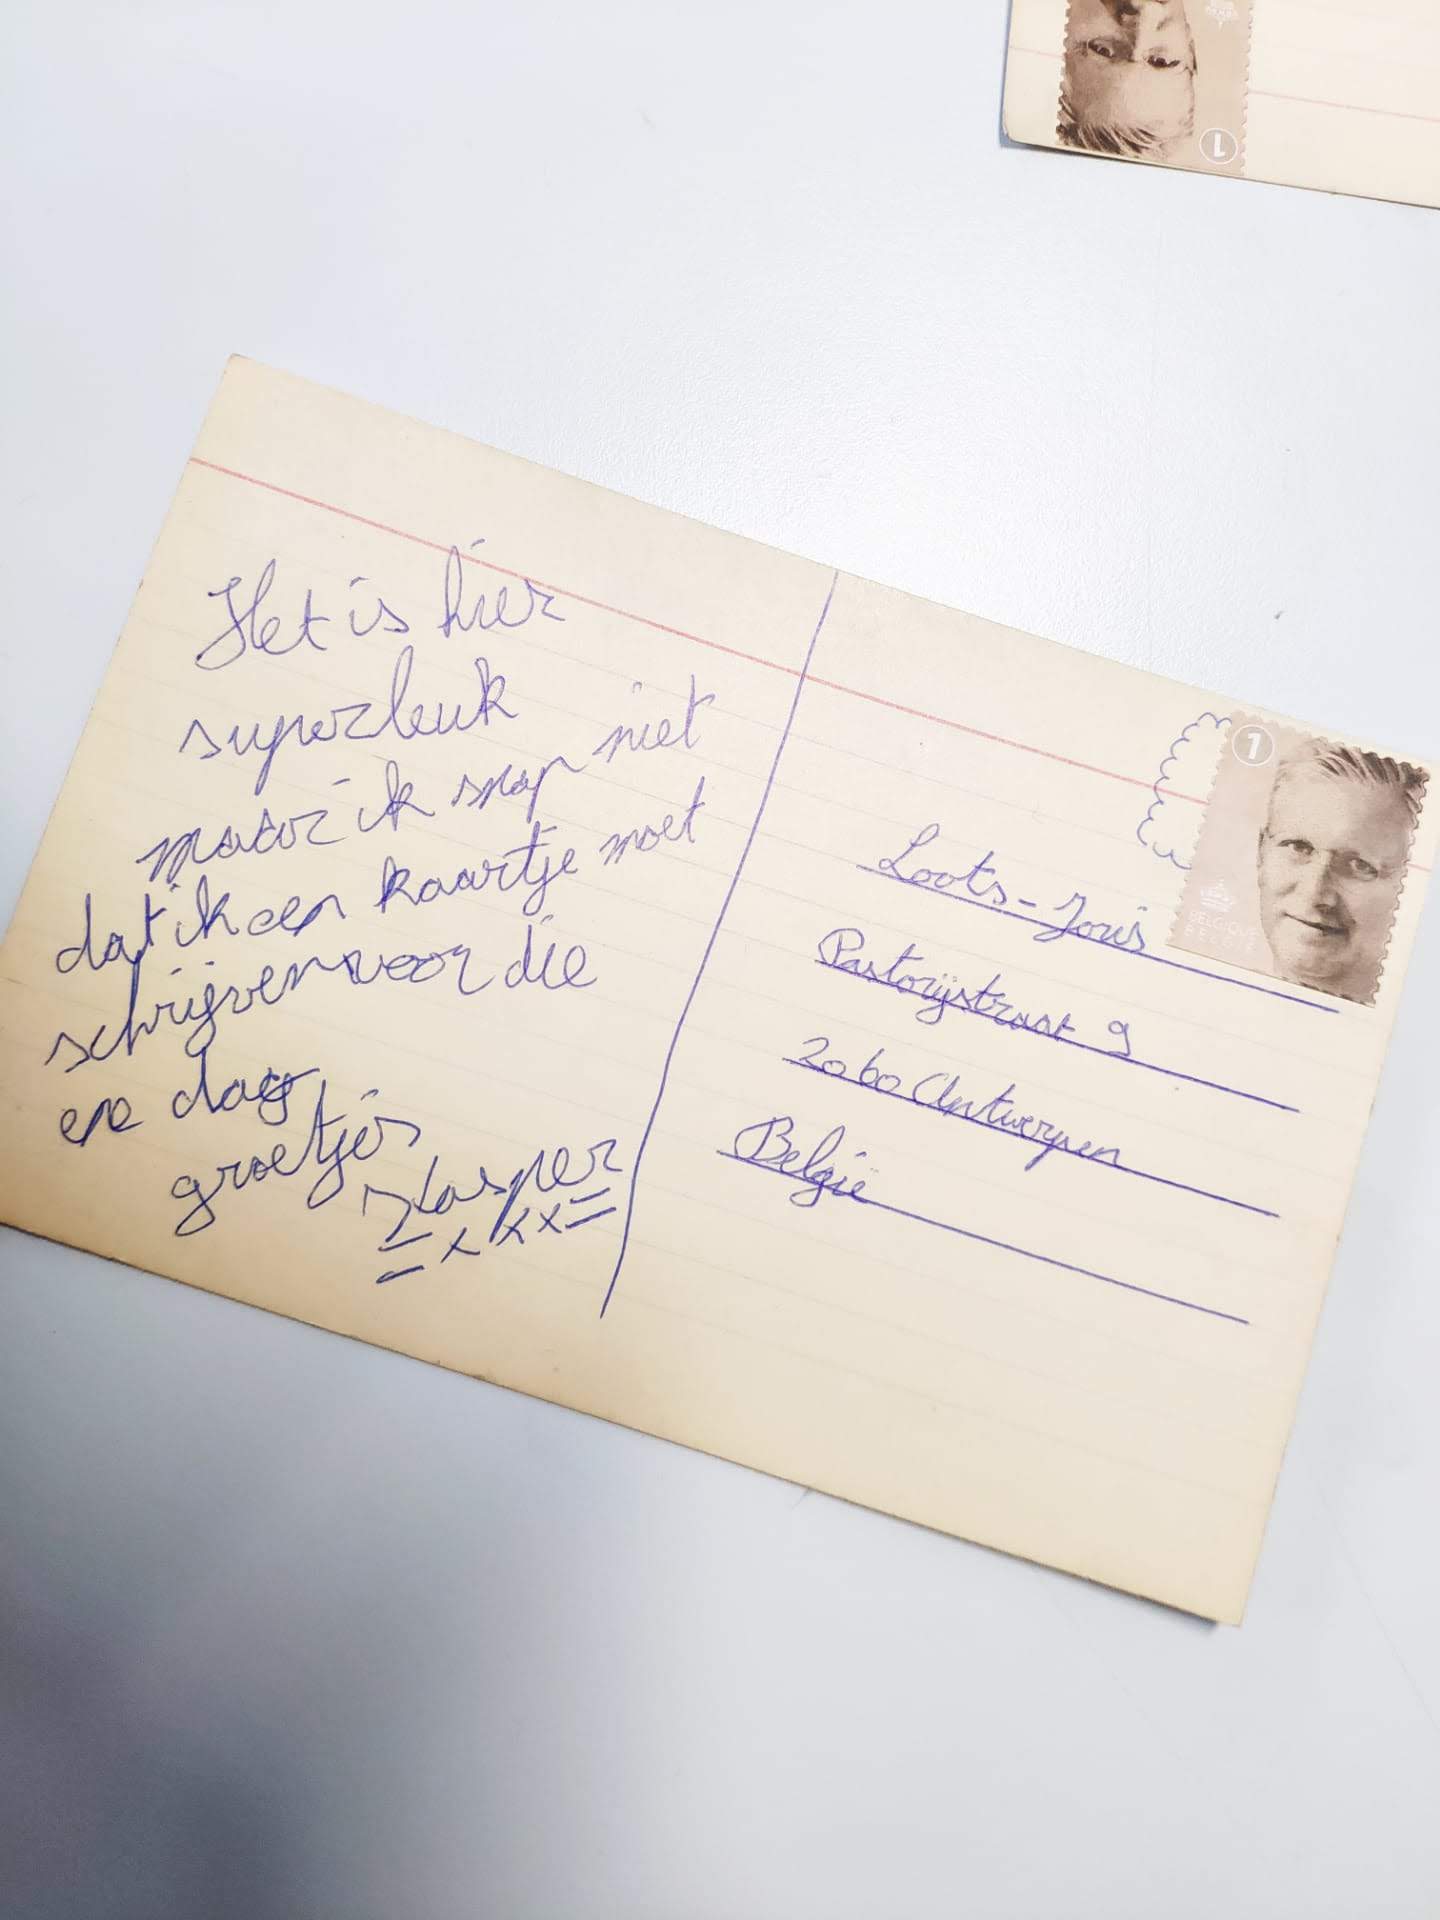 Het is hier
superleuk
maar ik snap niet
dat ik een kaartje moet
schrijven voor die
ene dag
groetjes
Kasper
x x x x
Loots-Joris
Pastorijstraat 9
2060 Antwerpen
België
1
BELGIQUE
BELGIË
1